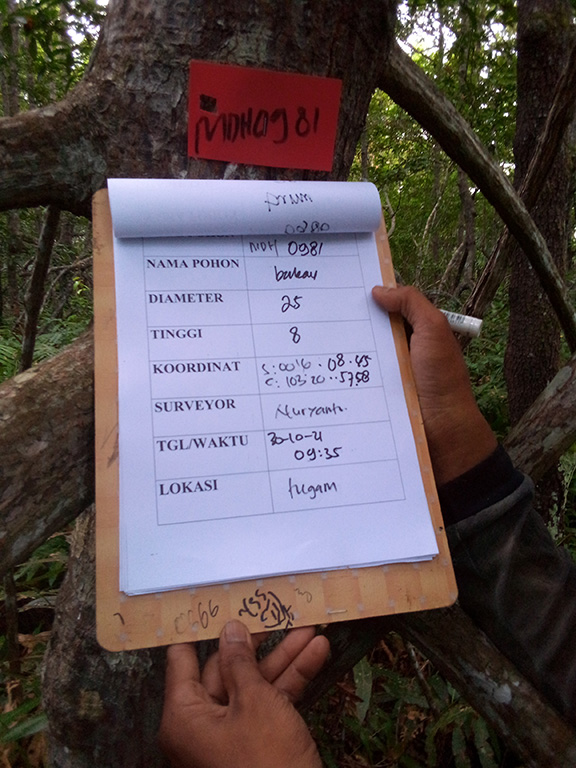 MDH0981
MDH 0981
NAMA POHON bakau
DIAMETER 25
TINGGI 8
KOORDINAT S:00'16.08.45
E:103:20..5758
SURVEYOR Nuryanto.
TGL/WAKTU 30-10-21
09:35
LOKASI tugam